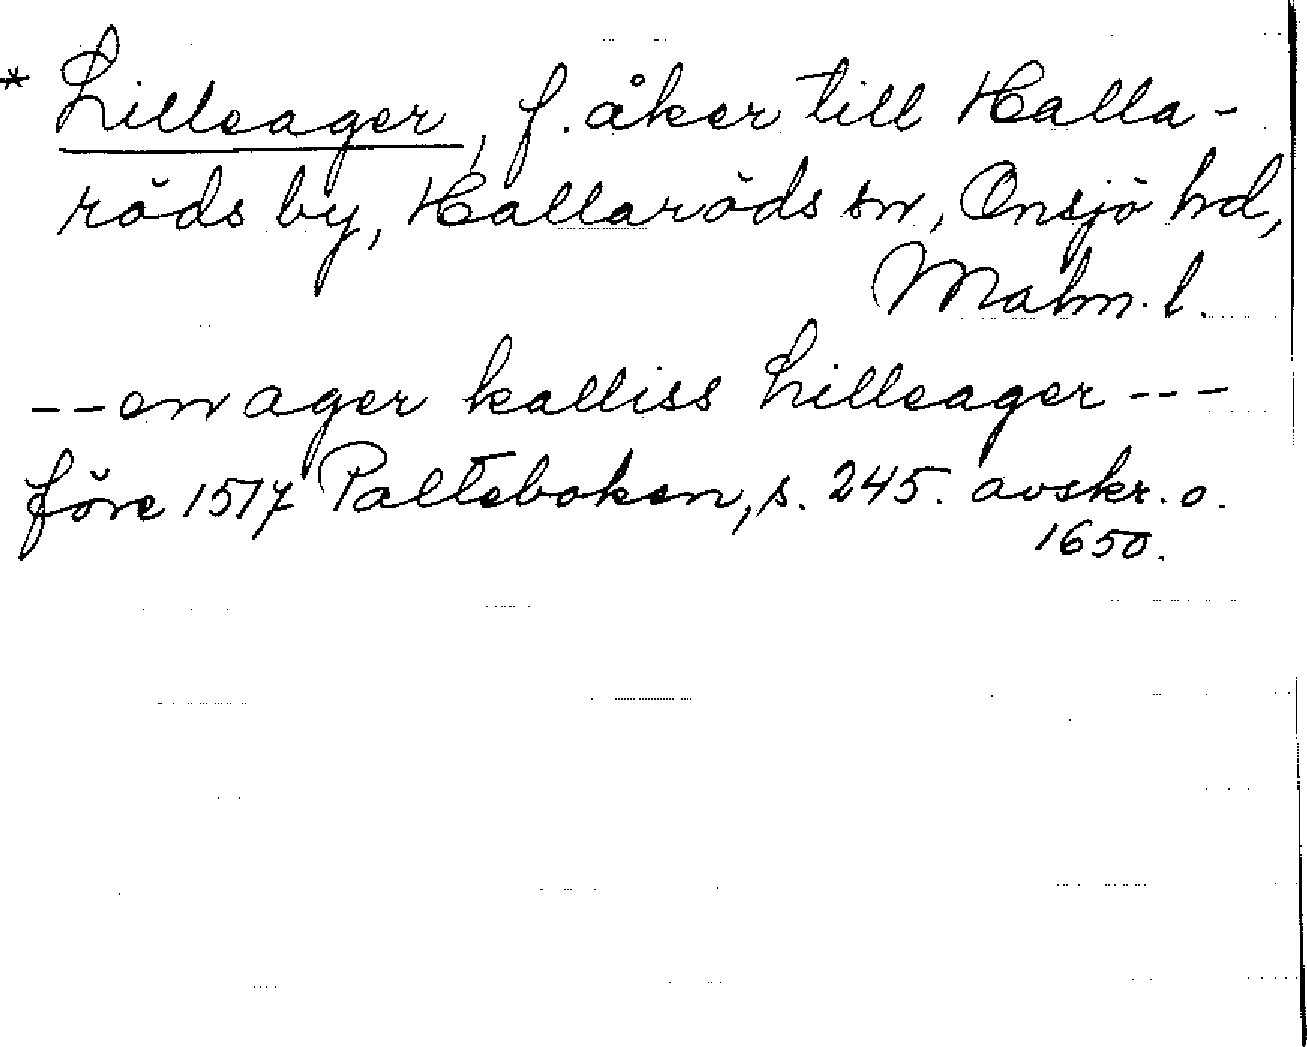 * Lilleager, f. åker till Halla-
röds by, Hallaröds sn, Onsjö hd,
Malm. l.
-- en ager kalliss Lilleager ---
före 1517 Palteboken, s. 245. avskr. o.
1650.